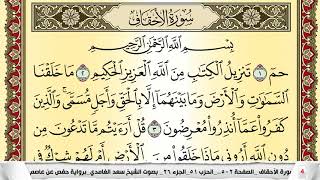 سُورَةُ الْأَحْقَافِ
بِسْمِ اللَّهِ الرَّحْمَٰنِ الرَّحِيمِ
حمٓ ١ تَنزِيلُ الْكِتَابِ مِنَ اللَّهِ الْعَزِيزِ الْحَكِيمِ ٢ مَا خَلَقْنَا
السَّمَاوَاتِ وَالْأَرْضَ وَمَا بَيْنَهُمَا إِلَّا بِالْحَقِّ وَأَجَلٍ مُّسَمًّى ۚ وَالَّذِينَ
كَفَرُوا عَمَّا أُنذِرُوا مُعْرِضُونَ ٣ قُلْ أَرَأَيْتُم مَّا تَدْعُونَ مِن
دُونِ اللَّهِ أَرُونِي مَاذَا خَلَقُوا مِنَ الْأَرْضِ أَمْ لَهُمْ شِرْكٌ فِي
ورة الأحقاف_ الصفحة ٥٠٢_ الحزب ٥١_ الجزء ٢٦_ بصوت الشيخ سعد الغامدي_ برواية حفص عن عاصم
4